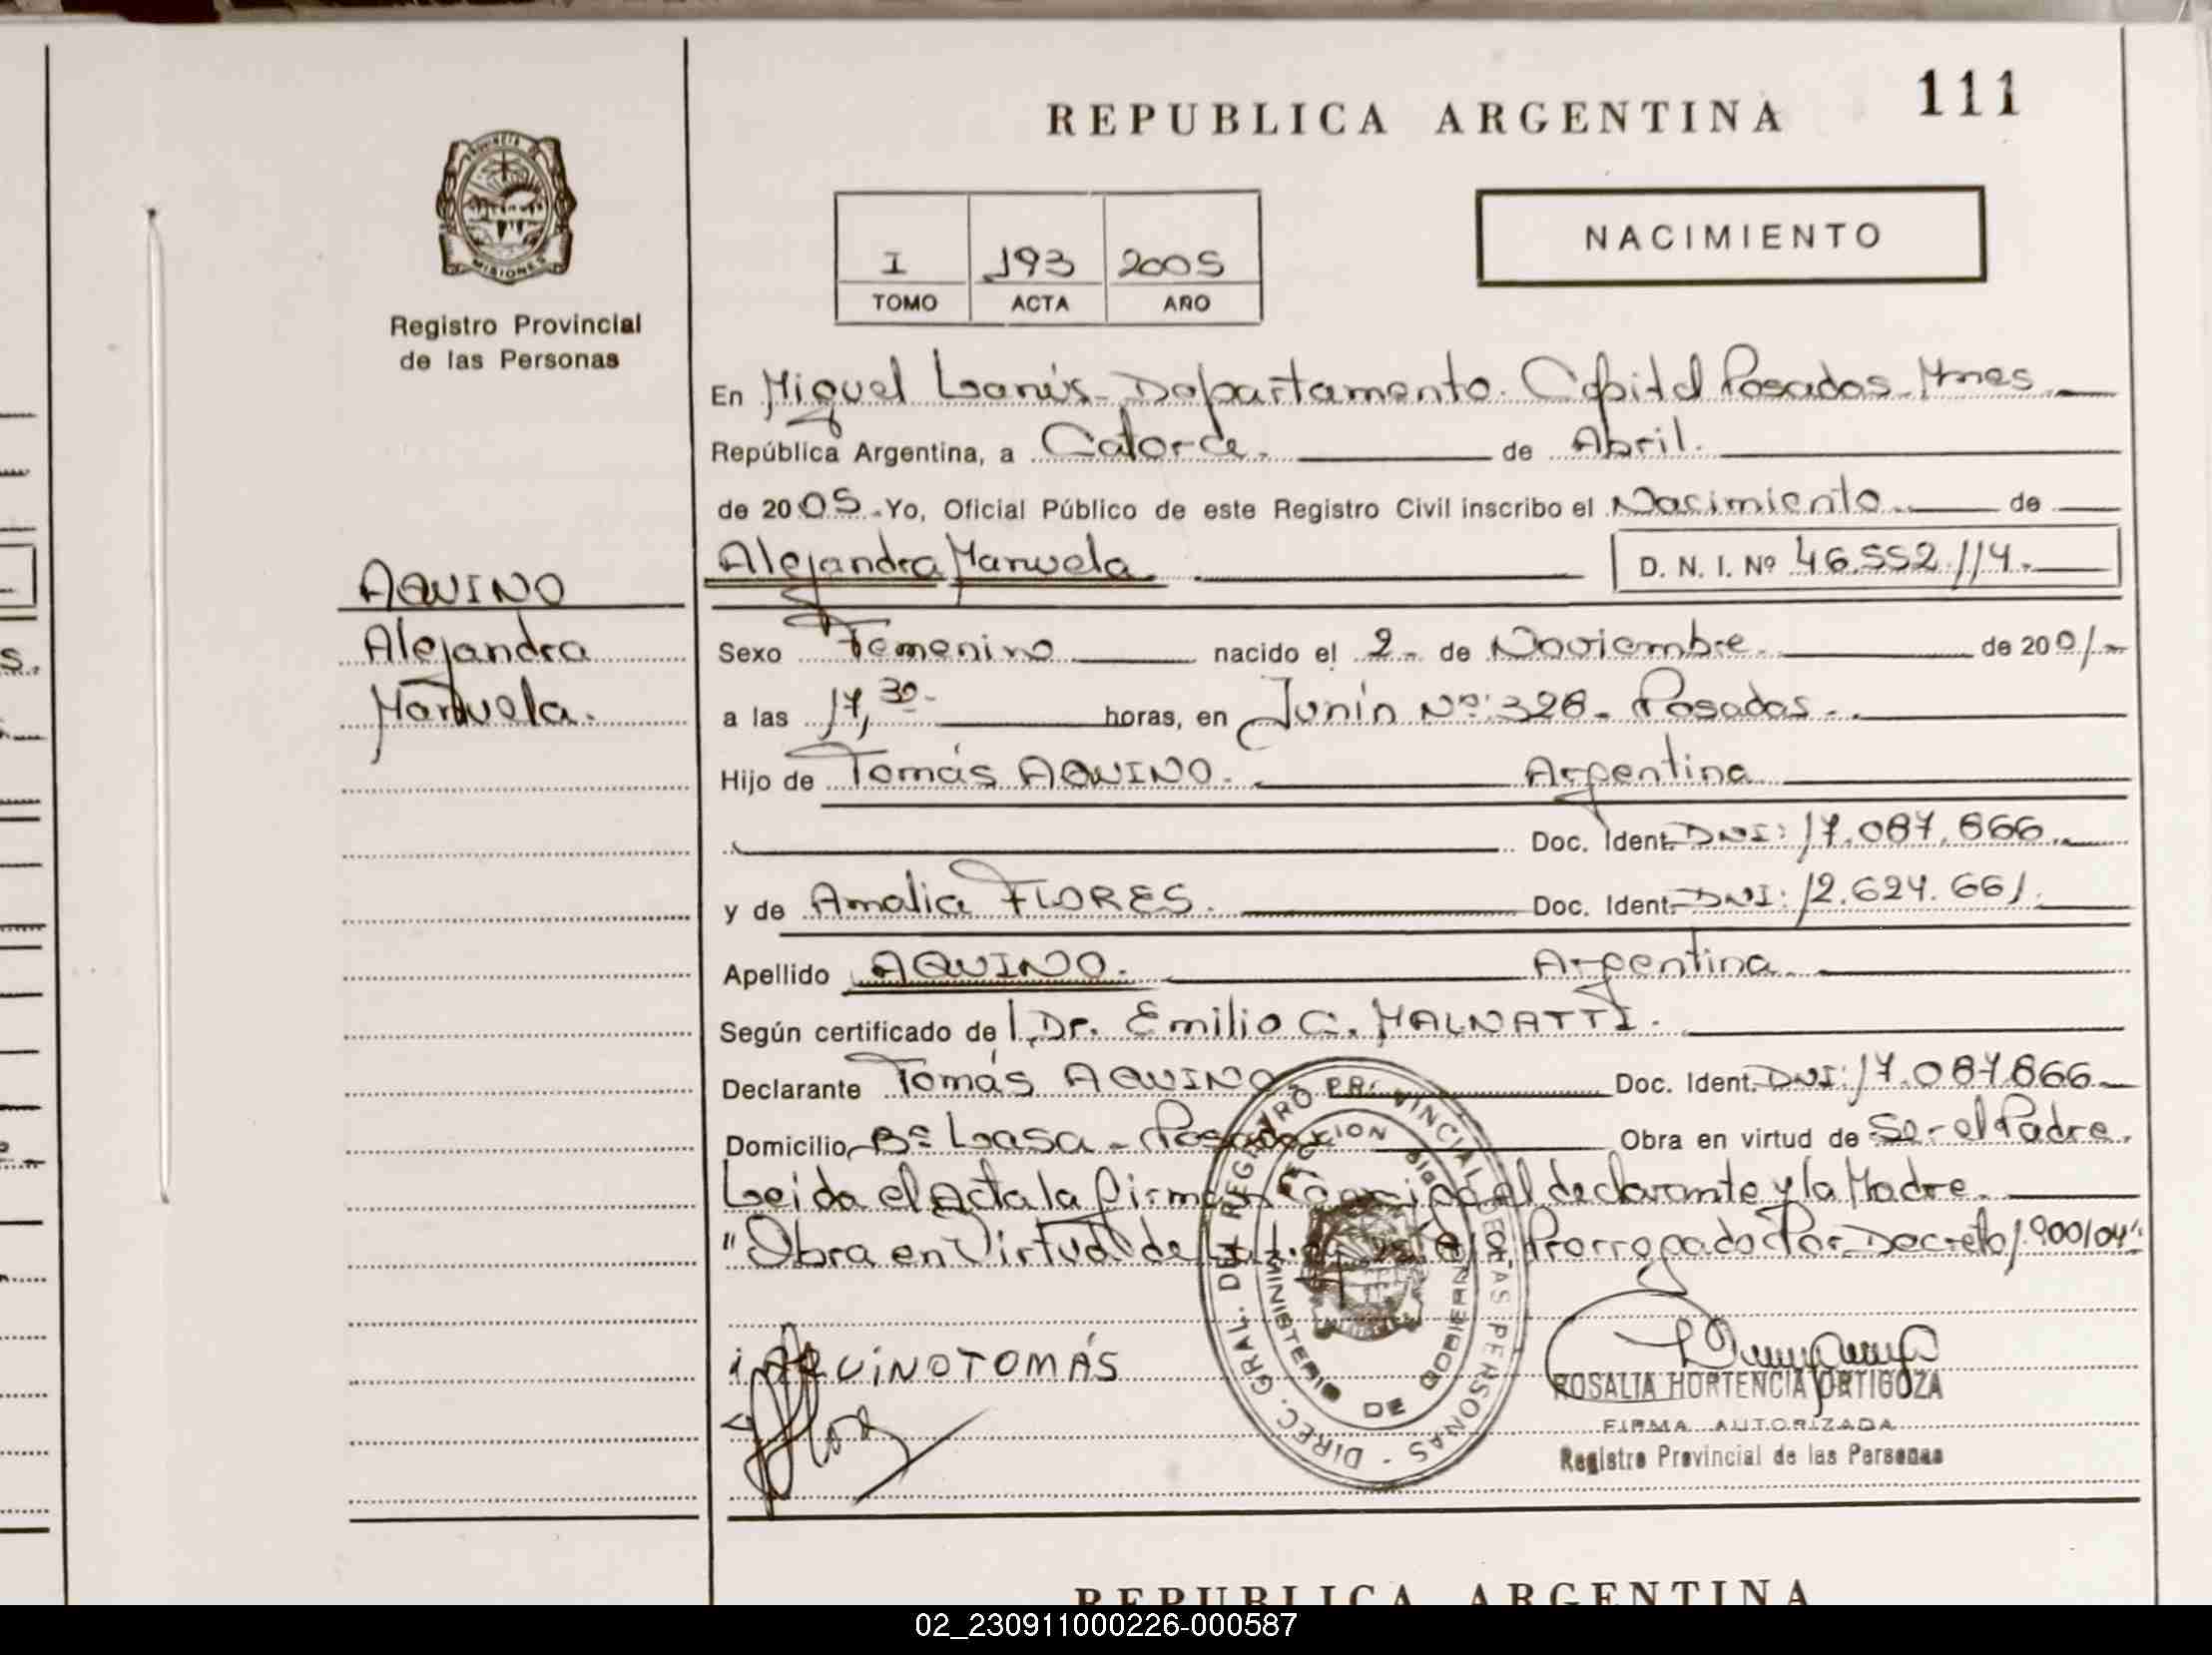 REPUBLICA ARGENTINA 111
PROVINCIA DE
MISIONES
Registro Provincial
de las Personas
I 193 2005
TOMO ACTA AÑO
NACIMIENTO
En Miguel Lanús - Departamento Capital Posadas - Mnes
República Argentina, a Catorce. de Abril.
de 2005. Yo, Oficial Público de este Registro Civil inscribo el Nacimiento de
Alejandra Manuela. D. N. I. Nº 46.552.114.
AQUINO
Alejandra
Manuela.
Sexo Femenino nacido el 2 - de Noviembre de 2001 -
a las 17,30- horas, en Junín Nº: 328 - Posadas -.
Hijo de Tomás AQUINO. Argentina
Doc. Ident. DNI: 17.087.866.
y de Amalia FLORES. Doc. Ident. DNI: 12.624.661.
Apellido AQUINO. Argentina
Según certificado de l Dr. Emilio C. MALNATTI.
Declarante Tomás AQUINO Doc. Ident. DNI: 17.087.866
Domicilio Bº Lasa - Posadas Obra en virtud de Ser el Padre.
Leida el Acta la firman Conmigo el declarante y la Madre.
"Obra en Virtud de Prorrogado Por Decreto 1900/04"
AQUINO TOMÁS
DIREC. GRAL. DEL REGISTRO PROVINCIAL DE LAS PERSONAS -
MINISTERIO DE GOBIERNO
ROSALIA HORTENCIA ORTIGOZA
FIRMA AUTORIZADA
Registro Provincial de las Personas
REPUBLICA ARGENTINA
02_230911000226-000587